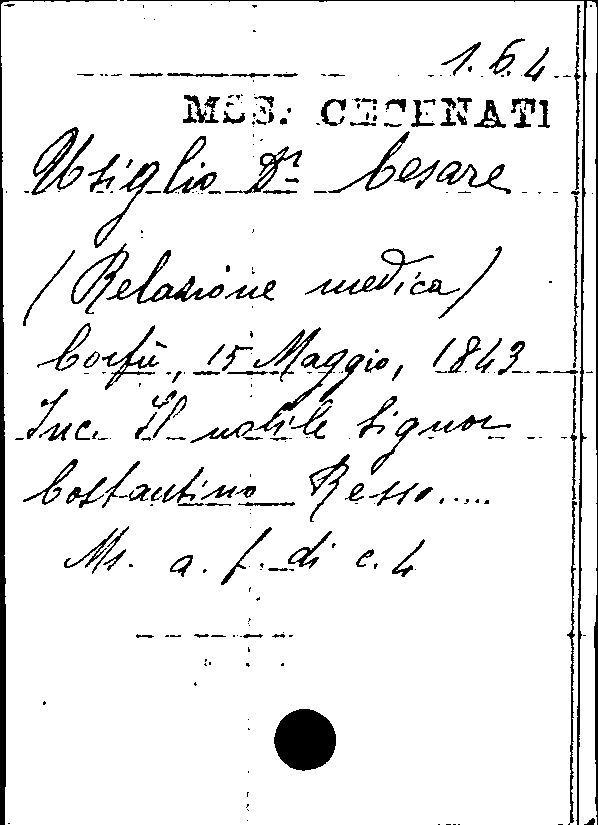 1.6.4
MSS. CESENATI
Usiglio Dr Cesare
(Relazione medica)
Corfù, 15 Maggio, 1843
Inc. Il nobile Signor
Costantino Resso.....
Ms. a. f. di c. 4